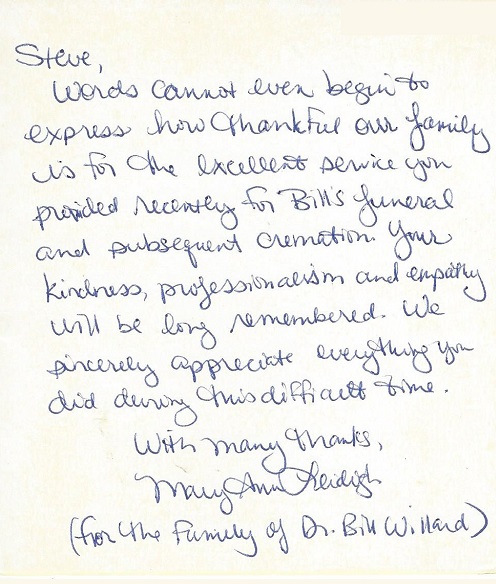 Steve,
Words cannot even begin to
express how thankful our family
is for the excellent service you
provided recently for Bill's funeral
and subsequent cremation. Your
kindness, professionalism and empathy
will be long remembered. We
sincerely appreciate everything you
did during this difficult time.
With many thanks,
Mary Ann
(for the Family of Dr. Bill Willard)